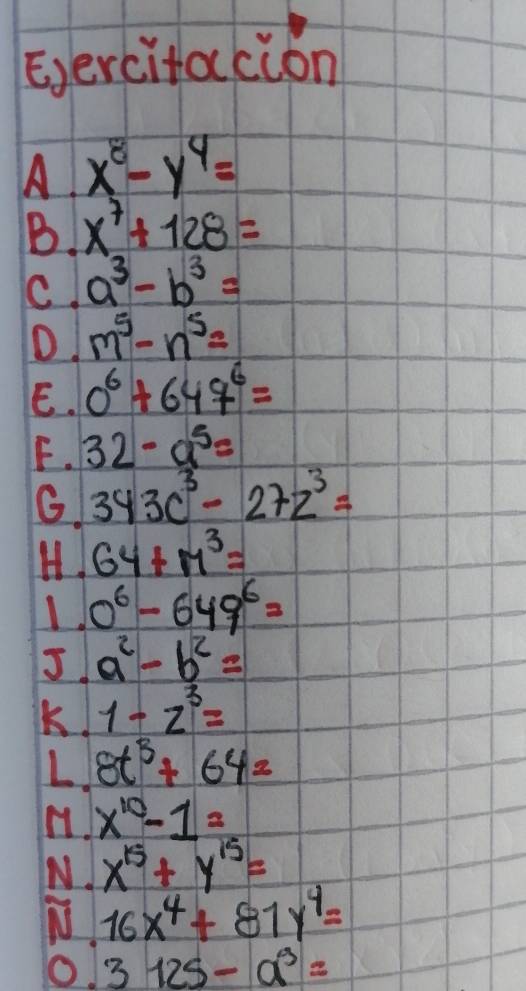 Ejercitación
A. x⁸ - y⁴ =
B. x⁷ + 128 =
C. a³ - b³ =
D. m⁵ - n⁵ =
E. o⁶ + 64q⁶ =
F. 32 - a⁵ =
G. 343c³ - 27z³ =
H. 64 + m³ =
I. o⁶ - 64q⁶ =
J. a² - b² =
K. 1 - z³ =
L. 8t³ + 64 =
M. x¹⁰ - 1 =
N. x¹⁵ + y¹⁵ =
Ñ. 16x⁴ + 81y⁴ =
O. 3 125 - a⁵ =